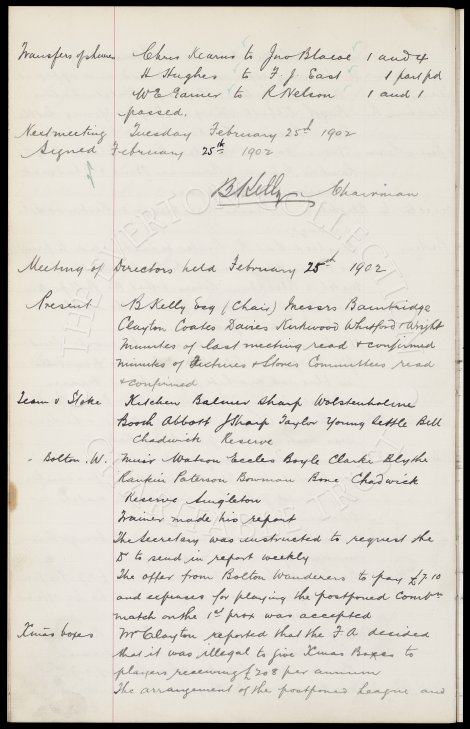 Transfers of shares Chris Kearns to Jno Blacoe 1 and 4
H Hughes to F. J. East 1 part pd
W E Garner to R Nelson 1 and 1
passed.
Next meeting Tuesday February 25th 1902
Signed February 25th 1902
B Kelly Chairman
Meeting of Directors held February 25th 1902
Present B Kelly Esq (Chair) Messrs Bainbridge
Clayton Coates Davies Kirkwood Whitford & Wright
Minutes of last meeting read & confirmed
Minutes of Fixtures & Stores Committees read
& confirmed
Team v Stoke Kitchen Balmer Sharp Wolstenholme
Booth Abbott J Sharp Taylor Young Settle Bell
Chadwick Reserve
" Bolton. W. Muir Watson Eccles Boyle Clarke Blythe
Rankin Paterson Bowman Bone Chadwick
Reserve Singleton
Trainer made his report
The Secretary was instructed to request the
Dr to send in report weekly
The offer from Bolton Wanderers to pay £7.10
and expenses for playing the postponed Combtn
match on the 1st prox was accepted
Xmas boxes Mr Clayton reported that the F A decided
that it was illegal to give Xmas Boxes to
players receiving £208 per annum
The arrangement of the postponed League and
THE EVERTON COLLECTION